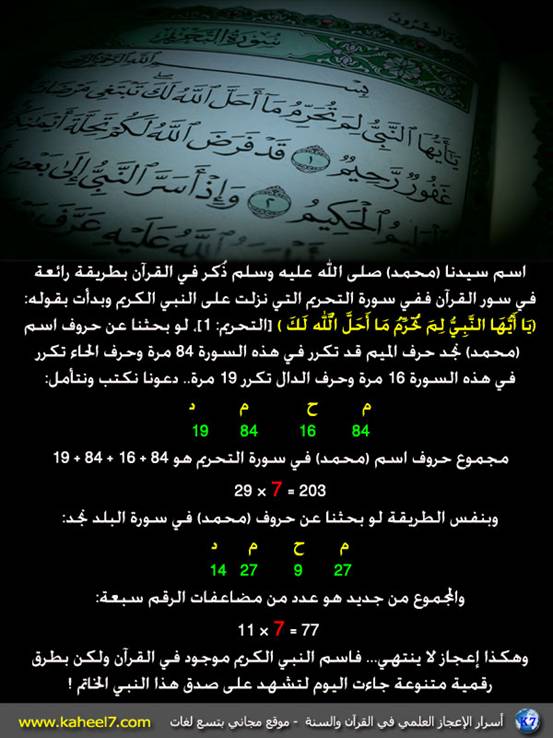 سورة التحريم
يَٰٓأَيُّهَا ٱلنَّبِيُّ لِمَ تُحَرِّمُ مَآ أَحَلَّ ٱللَّهُ لَكَ تَبْتَغِى مَرْضَاتَ
غَفُورٌ رَّحِيمٌ ١ قَدْ فَرَضَ ٱللَّهُ لَكُمْ تَحِلَّةَ أَيْمَٰنِكُمْ
ٱلْحَكِيمُ ٢ وَإِذْ أَسَرَّ ٱلنَّبِيُّ إِلَىٰ بَعْضِ
ٱللَّهُ عَلَيْهِ عَرَّفَ
اسم سيدنا (محمد) صلى الله عليه وسلم ذُكر في القرآن بطريقة رائعة
في سور القرآن ففي سورة التحريم التي نزلت على النبي الكريم وبدأت بقوله:
(يَا أَيُّهَا النَّبِيُّ لِمَ تُحَرِّمُ مَا أَحَلَّ اللَّهُ لَكَ ) [التحريم: 1]. لو بحثنا عن حروف اسم
(محمد) نجد حرف الميم قد تكرر في هذه السورة 84 مرة وحرف الحاء تكرر
في هذه السورة 16 مرة وحرف الدال تكرر 19 مرة.. دعونا نكتب ونتأمل:
م ح م د
84 16 84 19
مجموع حروف اسم (محمد) في سورة التحريم هو 84 + 16 + 84 + 19
29 × 7 = 203
وبنفس الطريقة لو بحثنا عن حروف (محمد) في سورة البلد نجد:
م ح م د
27 9 27 14
والمجموع من جديد هو عدد من مضاعفات الرقم سبعة:
11 × 7 = 77
وهكذا إعجاز لا ينتهي... فاسم النبي الكريم موجود في القرآن ولكن بطرق
رقمية متنوعة جاءت اليوم لتشهد على صدق هذا النبي الخاتم !
K7 أسرار الإعجاز العلمي في القرآن والسنة - موقع مجاني بتسع لغات www.kaheel7.com